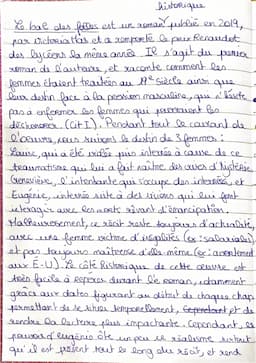 historique
Le bal des folles est un roman publié en 2019,
par Victoria Mas et a remporté le prix Renaudot
des lycéens la même année. Il s'agit du premier
roman de l'autaire, et raconte comment les
femmes étaient traitées au 19e siècle ainsi que
leur destin face à la pression masculine, qui n'hésite
pas a enfermer les femmes qui
déshonorer. (Cit I). Pendant tout le courant de
l'œuvre, nous suivons le destin de 3 femmes :
Louise, qui a été violée puis internée à cause de ce
traumatisme qui lui a fait naître des crises d'hystérie
Geneviève, l'intendante qui s'occupe des internées, et
Eugénie, internée suite à des visions qui lui font
interagir avec les morts rêvant d'émancipation.
Malheureusement, ce récit reste toujours d'actualité,
avec une femme victime d'inégalités (ex : salariales)
et pas toujours maîtresse d'elle même (ex : avortement
aux E-U). Le côté historique de cette œuvre est
très facile à repérer durant le roman, notamment
grâce aux dates figurant au début de chaque chap
permettant de se situer temporellement, et de
rendre la lecture plus impactante. Cependant, le
pouvoir d'eugénie ôte un peu ce réalisme surtout
qu'il est présent tout le long du récit et rend